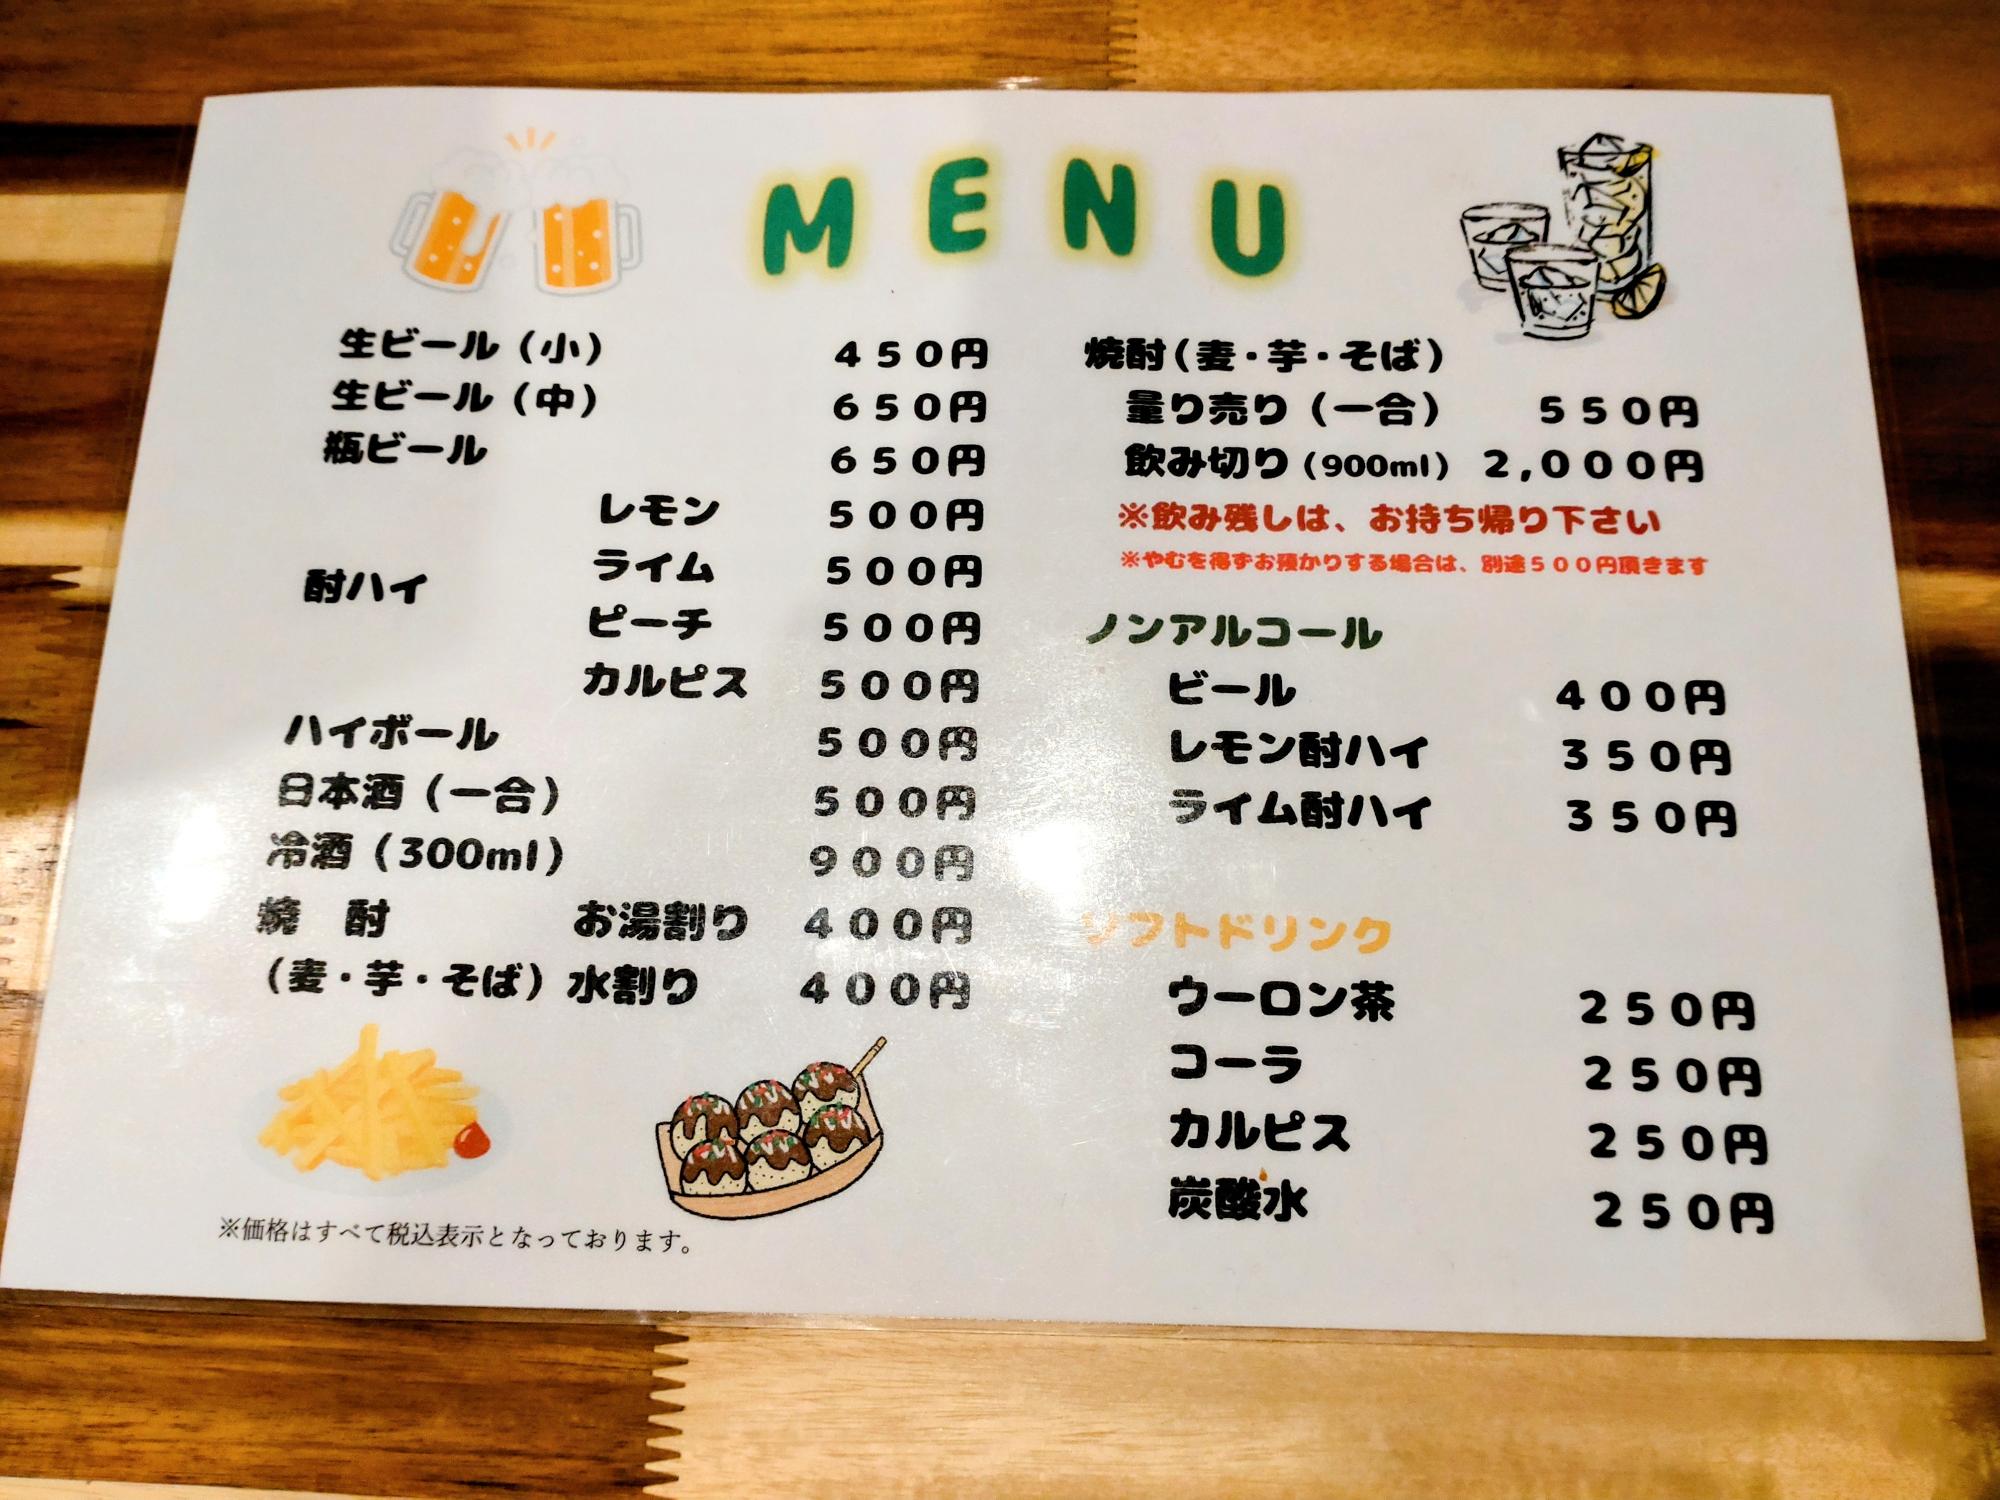 MENU
生ビール（小） ４５０円
生ビール（中） ６５０円
瓶ビール ６５０円
レモン ５００円
ライム ５００円
酎ハイ
ピーチ ５００円
カルピス ５００円
ハイボール ５００円
日本酒（一合） ５００円
冷酒（300ml） ９００円
焼　酎 お湯割り ４００円
（麦・芋・そば）水割り ４００円
※価格はすべて税込表示となっております。
焼酎（麦・芋・そば）
量り売り（一合） ５５０円
飲み切り（900ml） ２,０００円
※飲み残しは、お持ち帰り下さい
※やむを得ずお預かりする場合は、別途５００円頂きます
ノンアルコール
ビール ４００円
レモン酎ハイ ３５０円
ライム酎ハイ ３５０円
ソフトドリンク
ウーロン茶 ２５０円
コーラ ２５０円
カルピス ２５０円
炭酸水 ２５０円